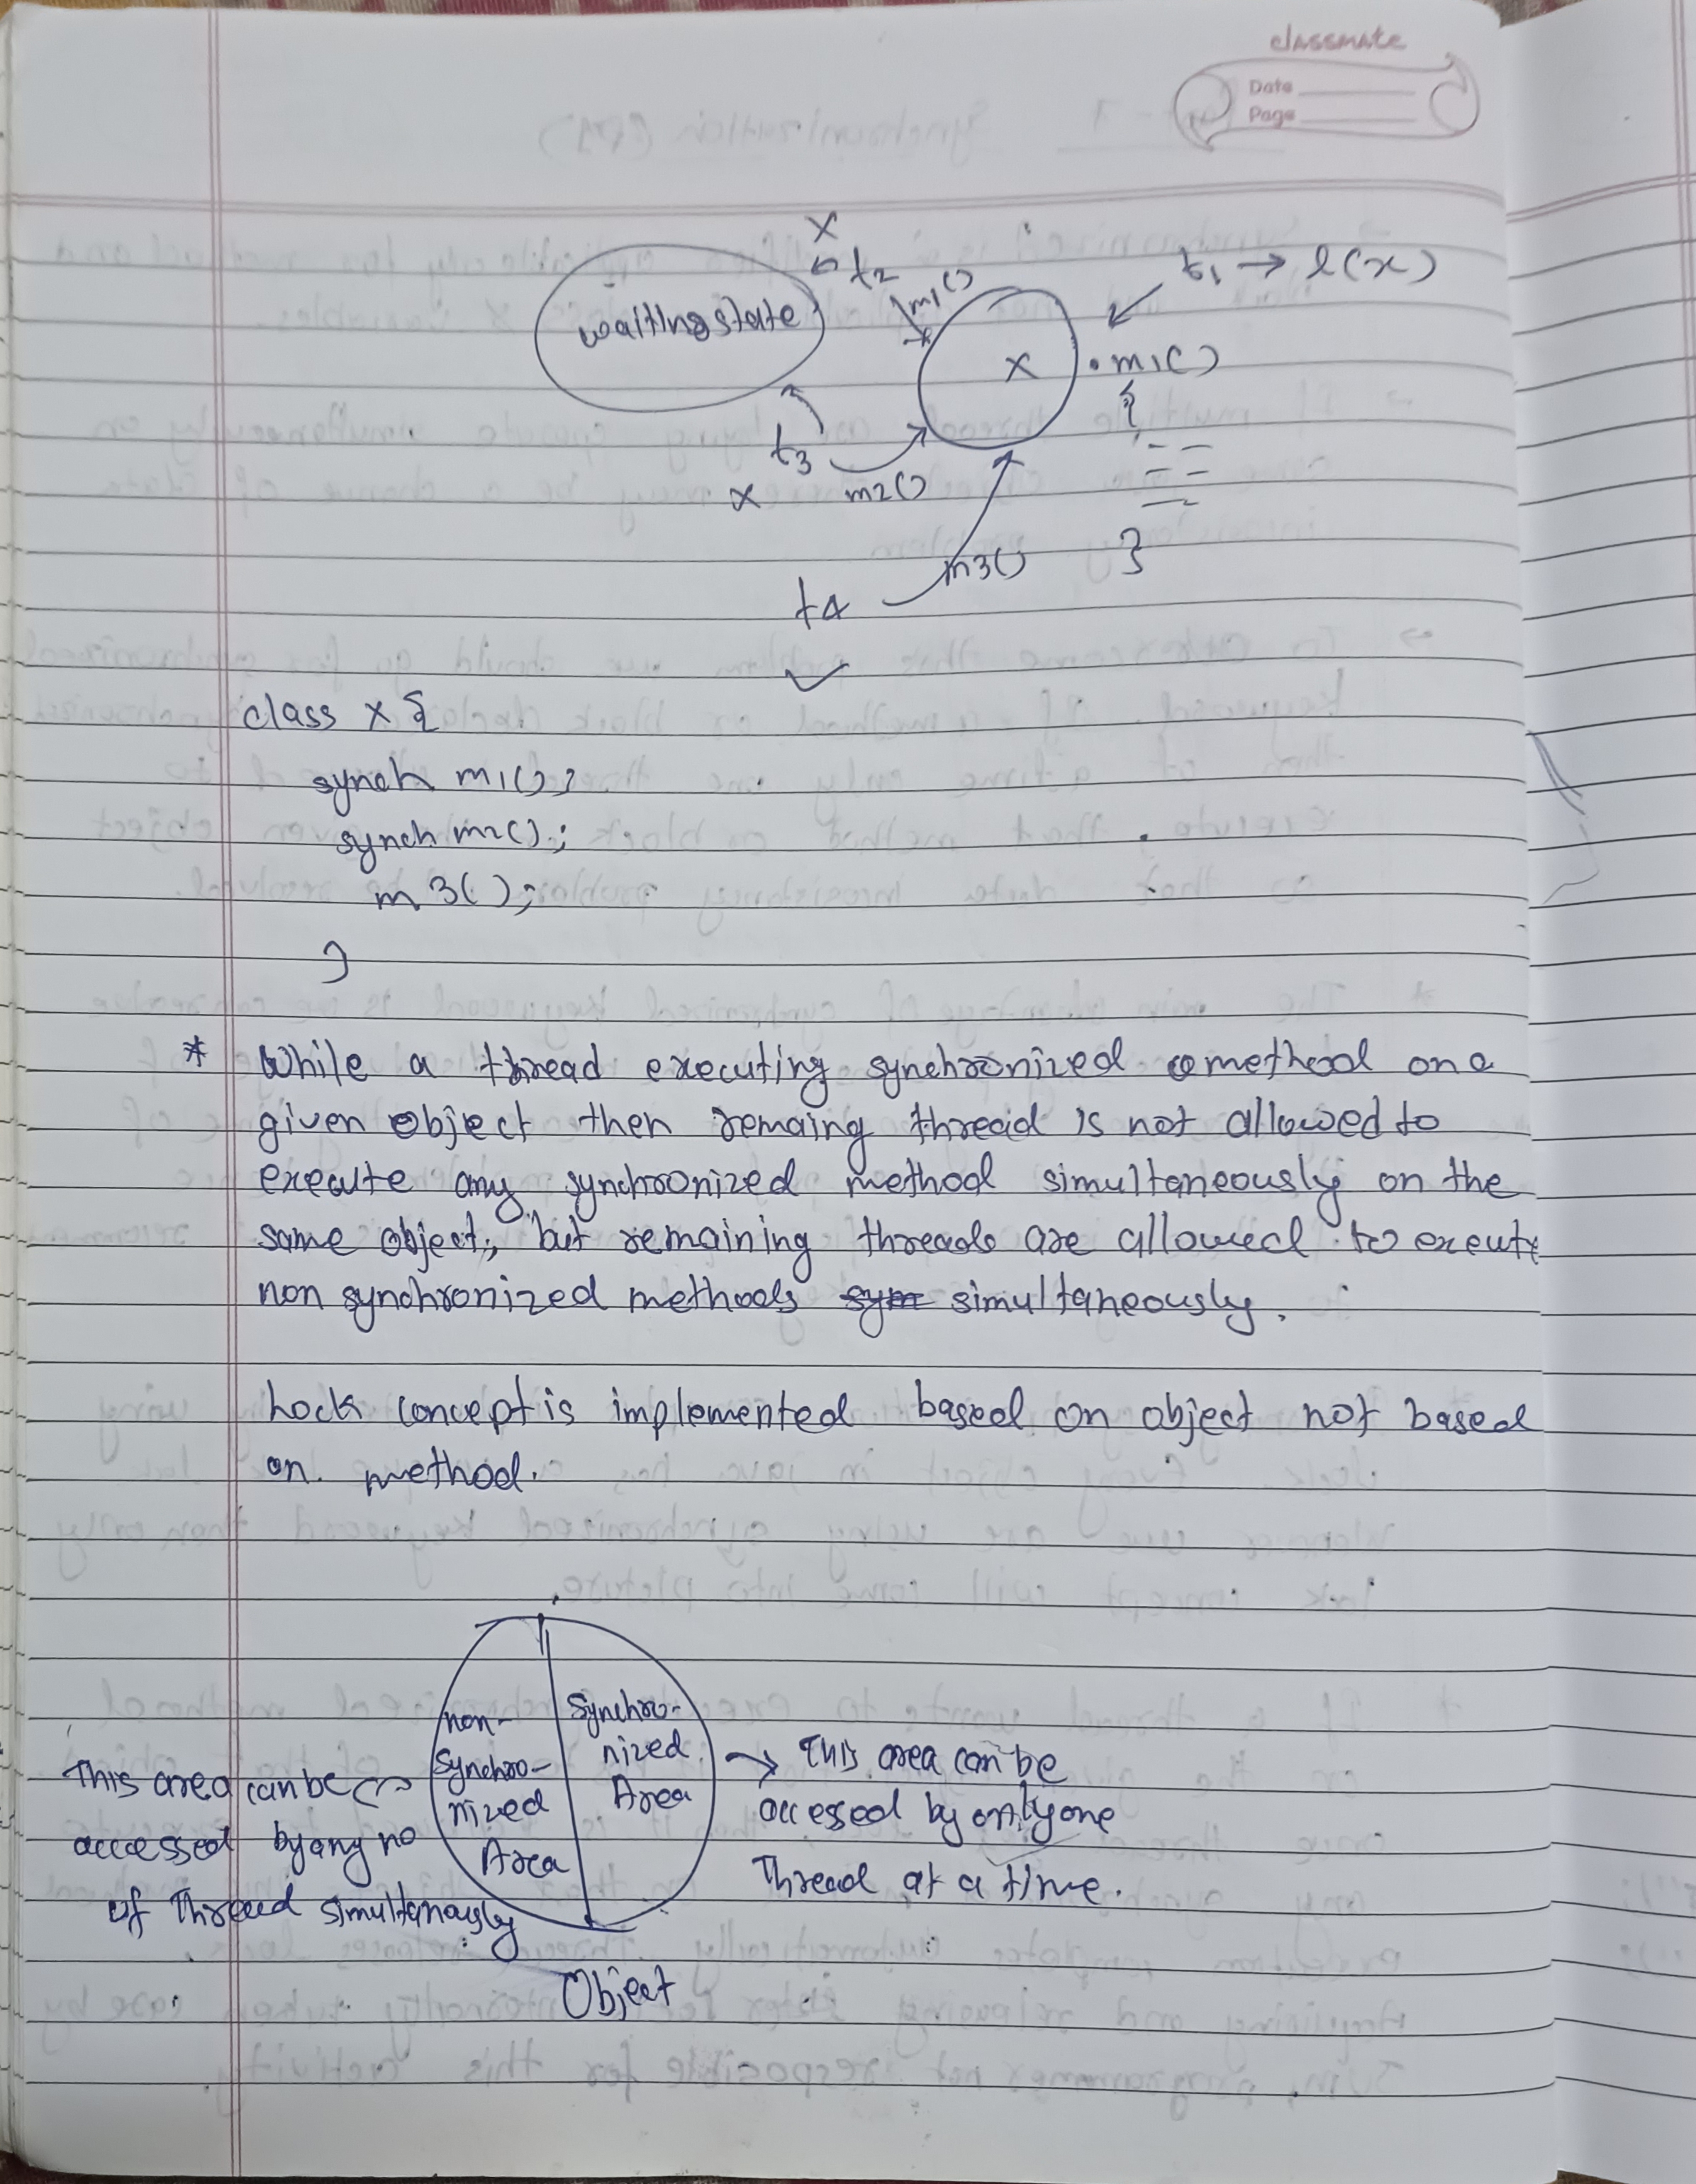 classmate
Date
Page
X
t2
m1()
t1 → l(x)
waiting state
X
.m1()
{
t3
x
m2()
}
m3()
t4
class X {
synch m1();
synch m2();
m3();
}
* While a thread executing synchronized method on a
given object then remaing thread is not allowed to
execute any synchronized method simultaneously on the
same object, but remaining threads are allowed to execute
non synchronized methods sym simultaneously.
Lock concept is implemented based on object not based
on method.
non-
synchro-
nized
Area
Synchro-
nized
Area
This area can be
accessed by any no
of Thread simultanously
→ This area can be
accessed by only one
Thread at a time.
Object